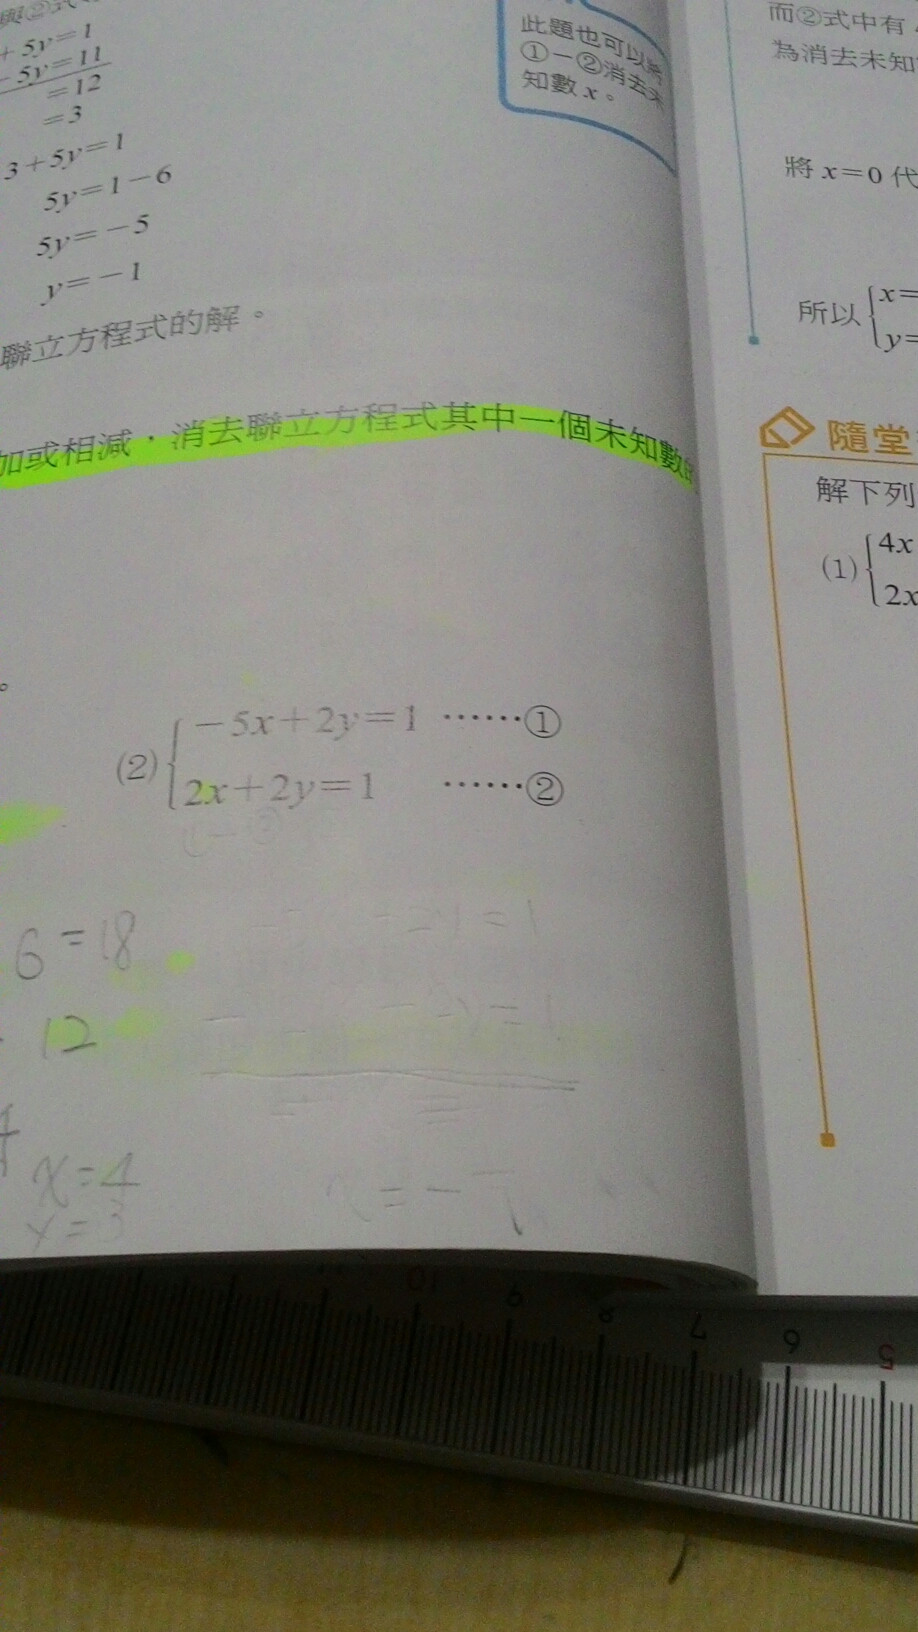 +5y=1
-5y=11
=12
=3
3+5y=1
5y=1-6
5y=-5
y=-1
聯立方程式的解。
加或相減,消去聯立方程式其中一個未知數
此題也可以將
①-②消去未
知數 x。
。
(2) { -5x+2y=1 ……①
2x+2y=1 ……②
6=18
12
x=4
y=3
+2y=1
=1
x=-
而②式中有
為消去未知
將 x=0 代
所以 { x=
y=
隨堂
解下列
(1) { 4x
2x
10 9 8 7 6 5